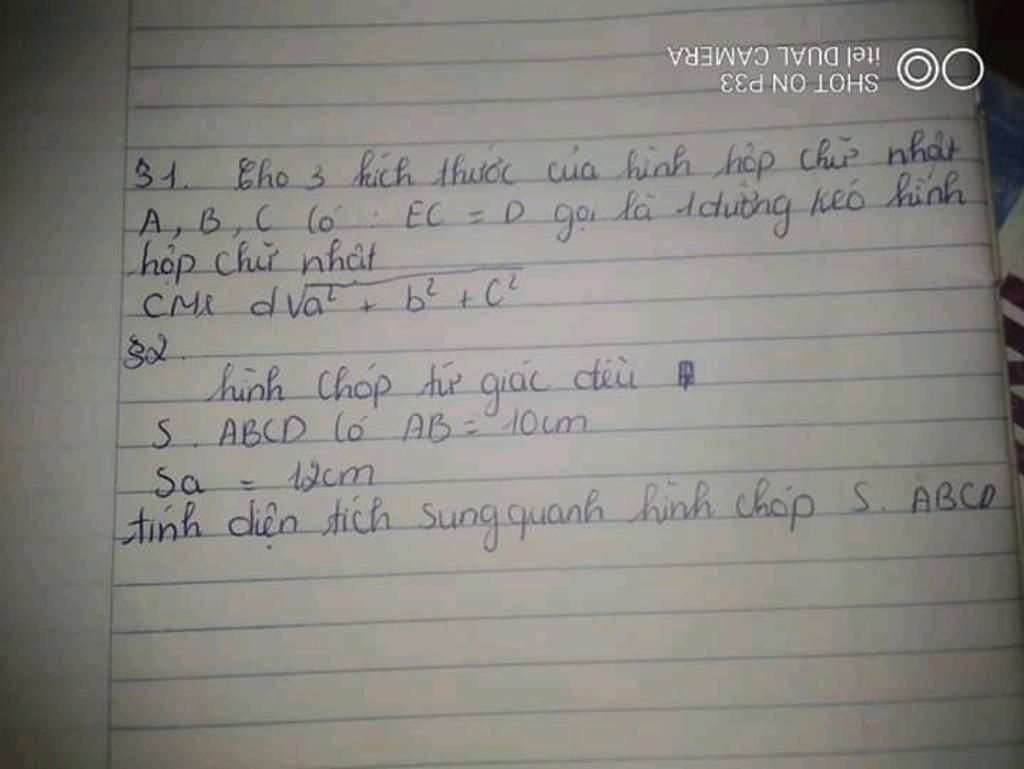 SHOT ON P33
itel DUAL CAMERA
§1. Cho 3 kích thước của hình hộp chữ nhật
A, B, C Có : EC = D gọi là 1 đường kéo hình
hộp chữ nhật
CMR d√a² + b² + c²
§2.
hình chóp tứ giác đều
S. ABCD Có AB = 10cm
Sa = 12cm
tính diện tích sung quanh hình chóp S. ABCD